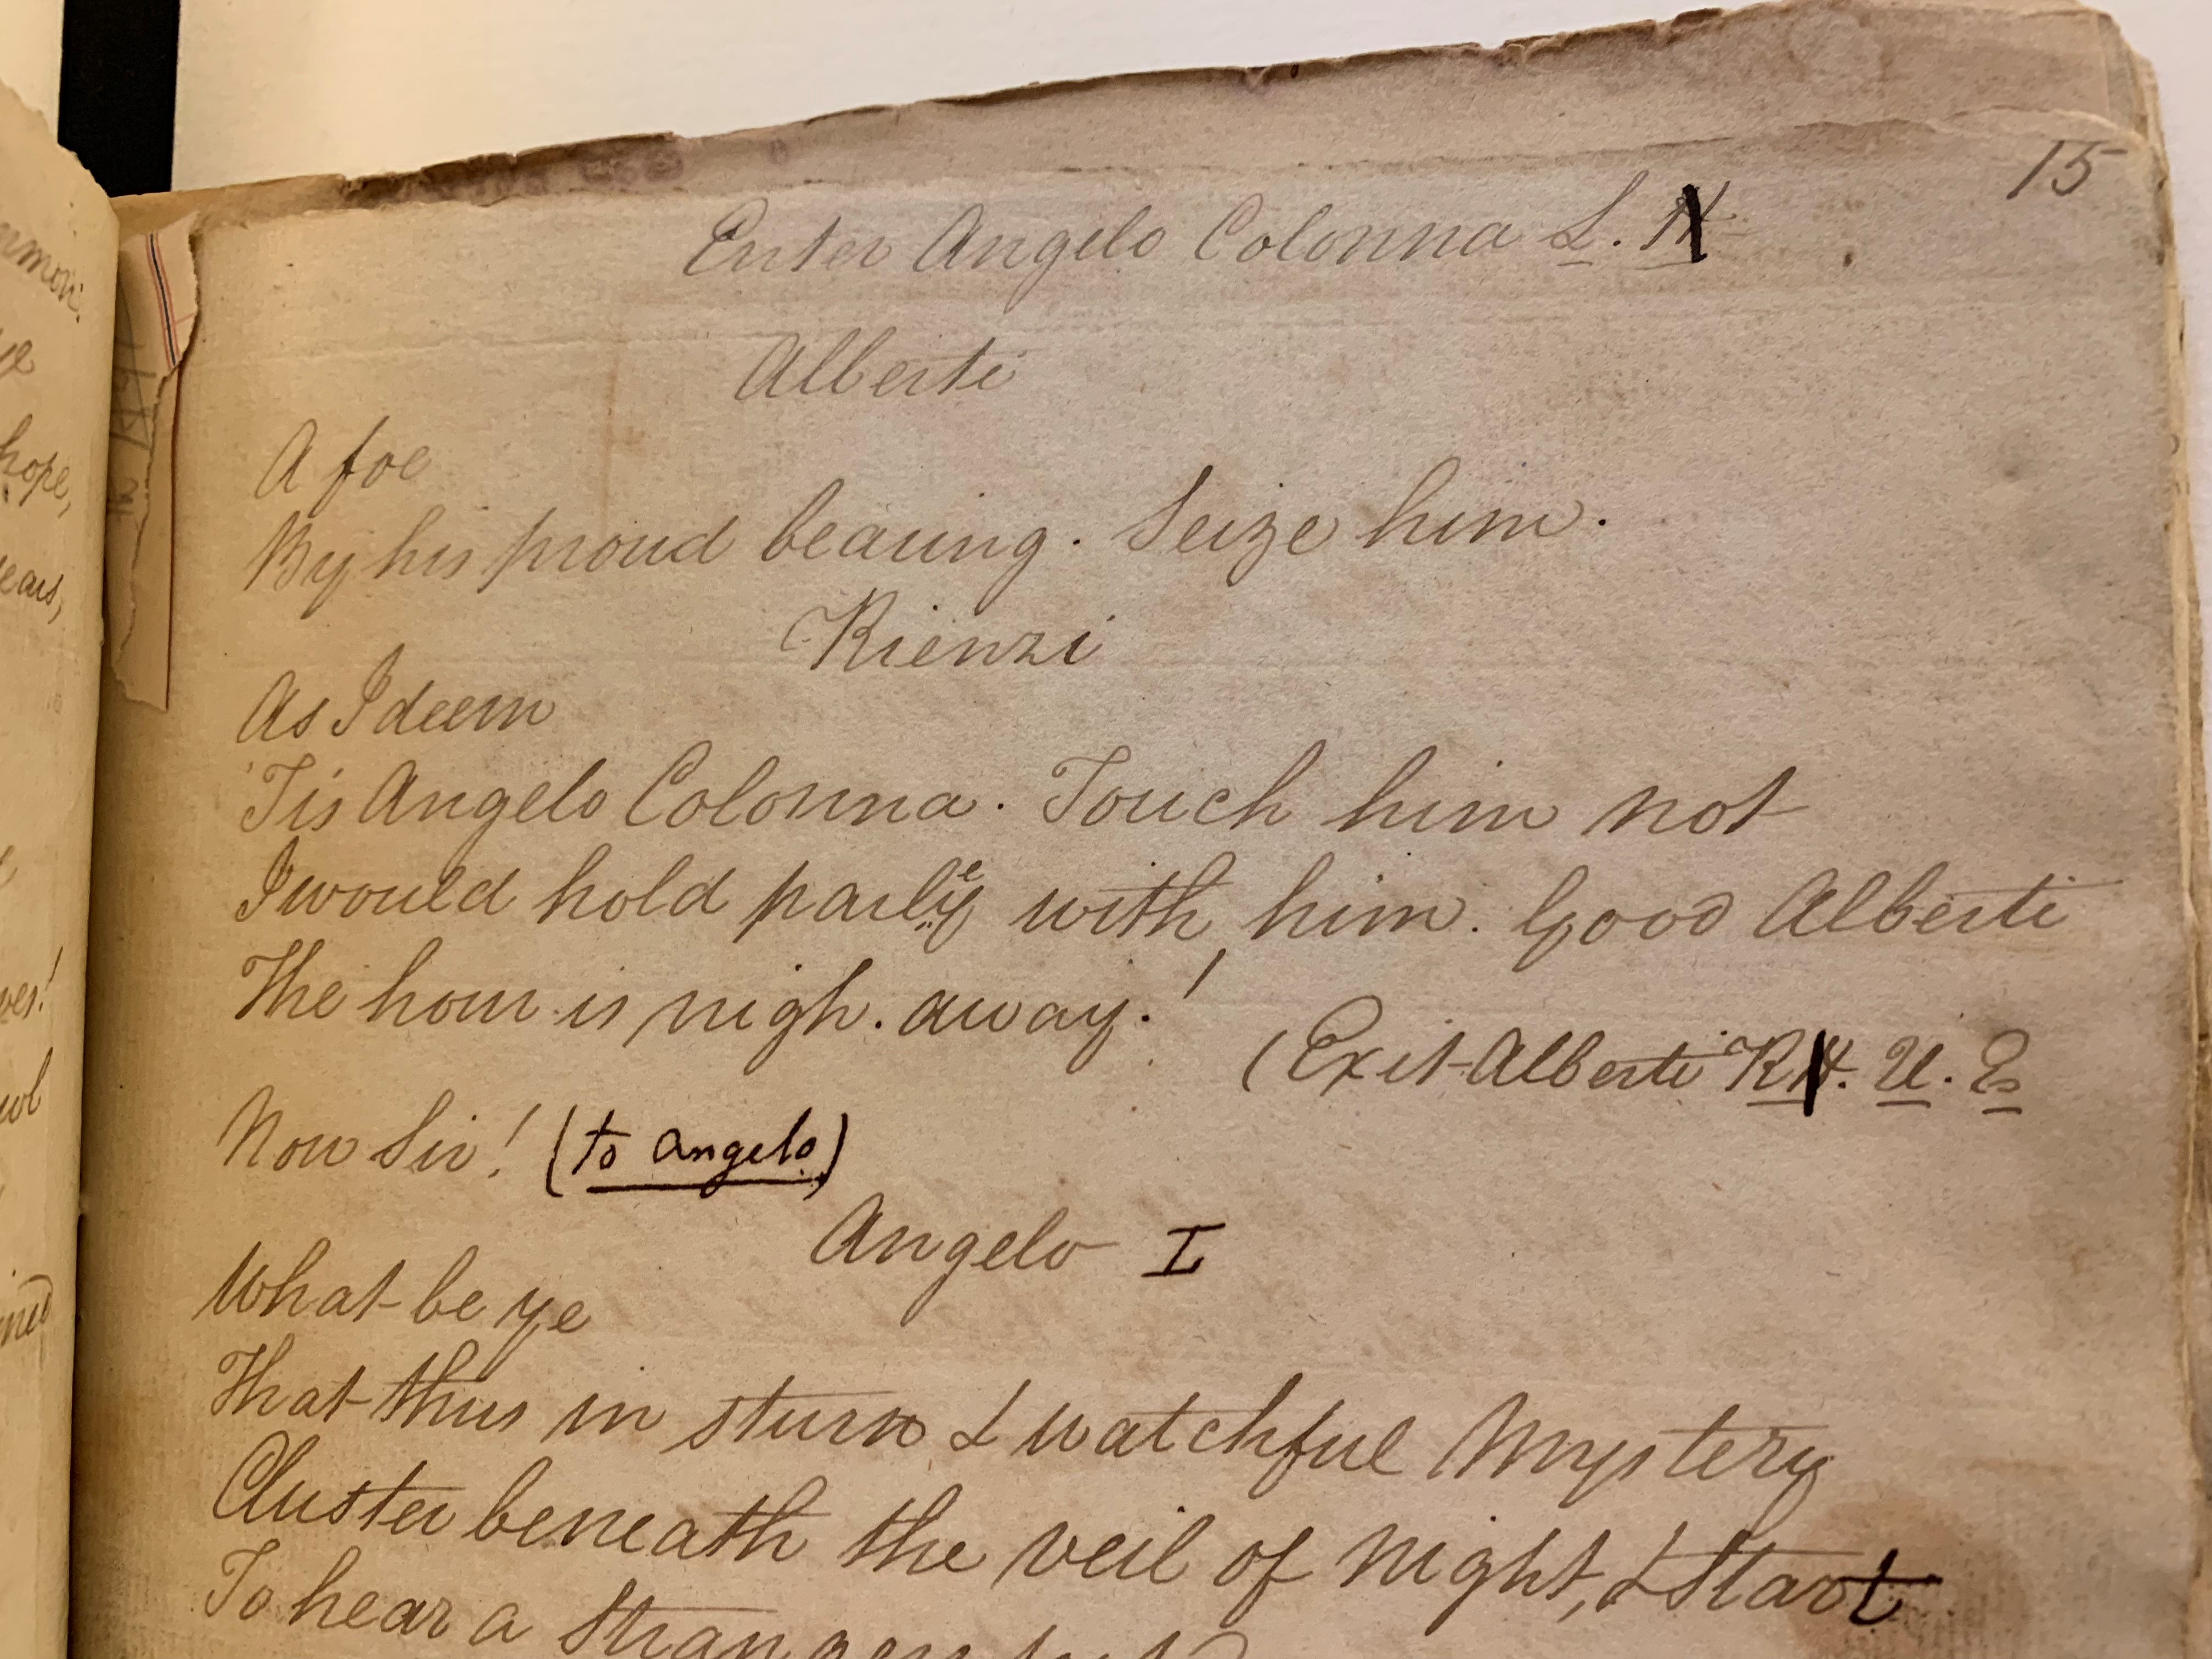 15
Enter Angelo Colonna L.
Alberti
A foe
By his proud bearing. Seize him.
Rienzi
As I deem
'Tis Angelo Colonna. Touch him not
I would hold parley with him. Good Alberti
The hour is nigh. away!
(Exit Alberti R. U. E
Now Sir! (to Angelo)
Angelo I
What be ye
That thus in stern & watchful Mystery
Cluster beneath the veil of Night, & Start
To hear a
hope,